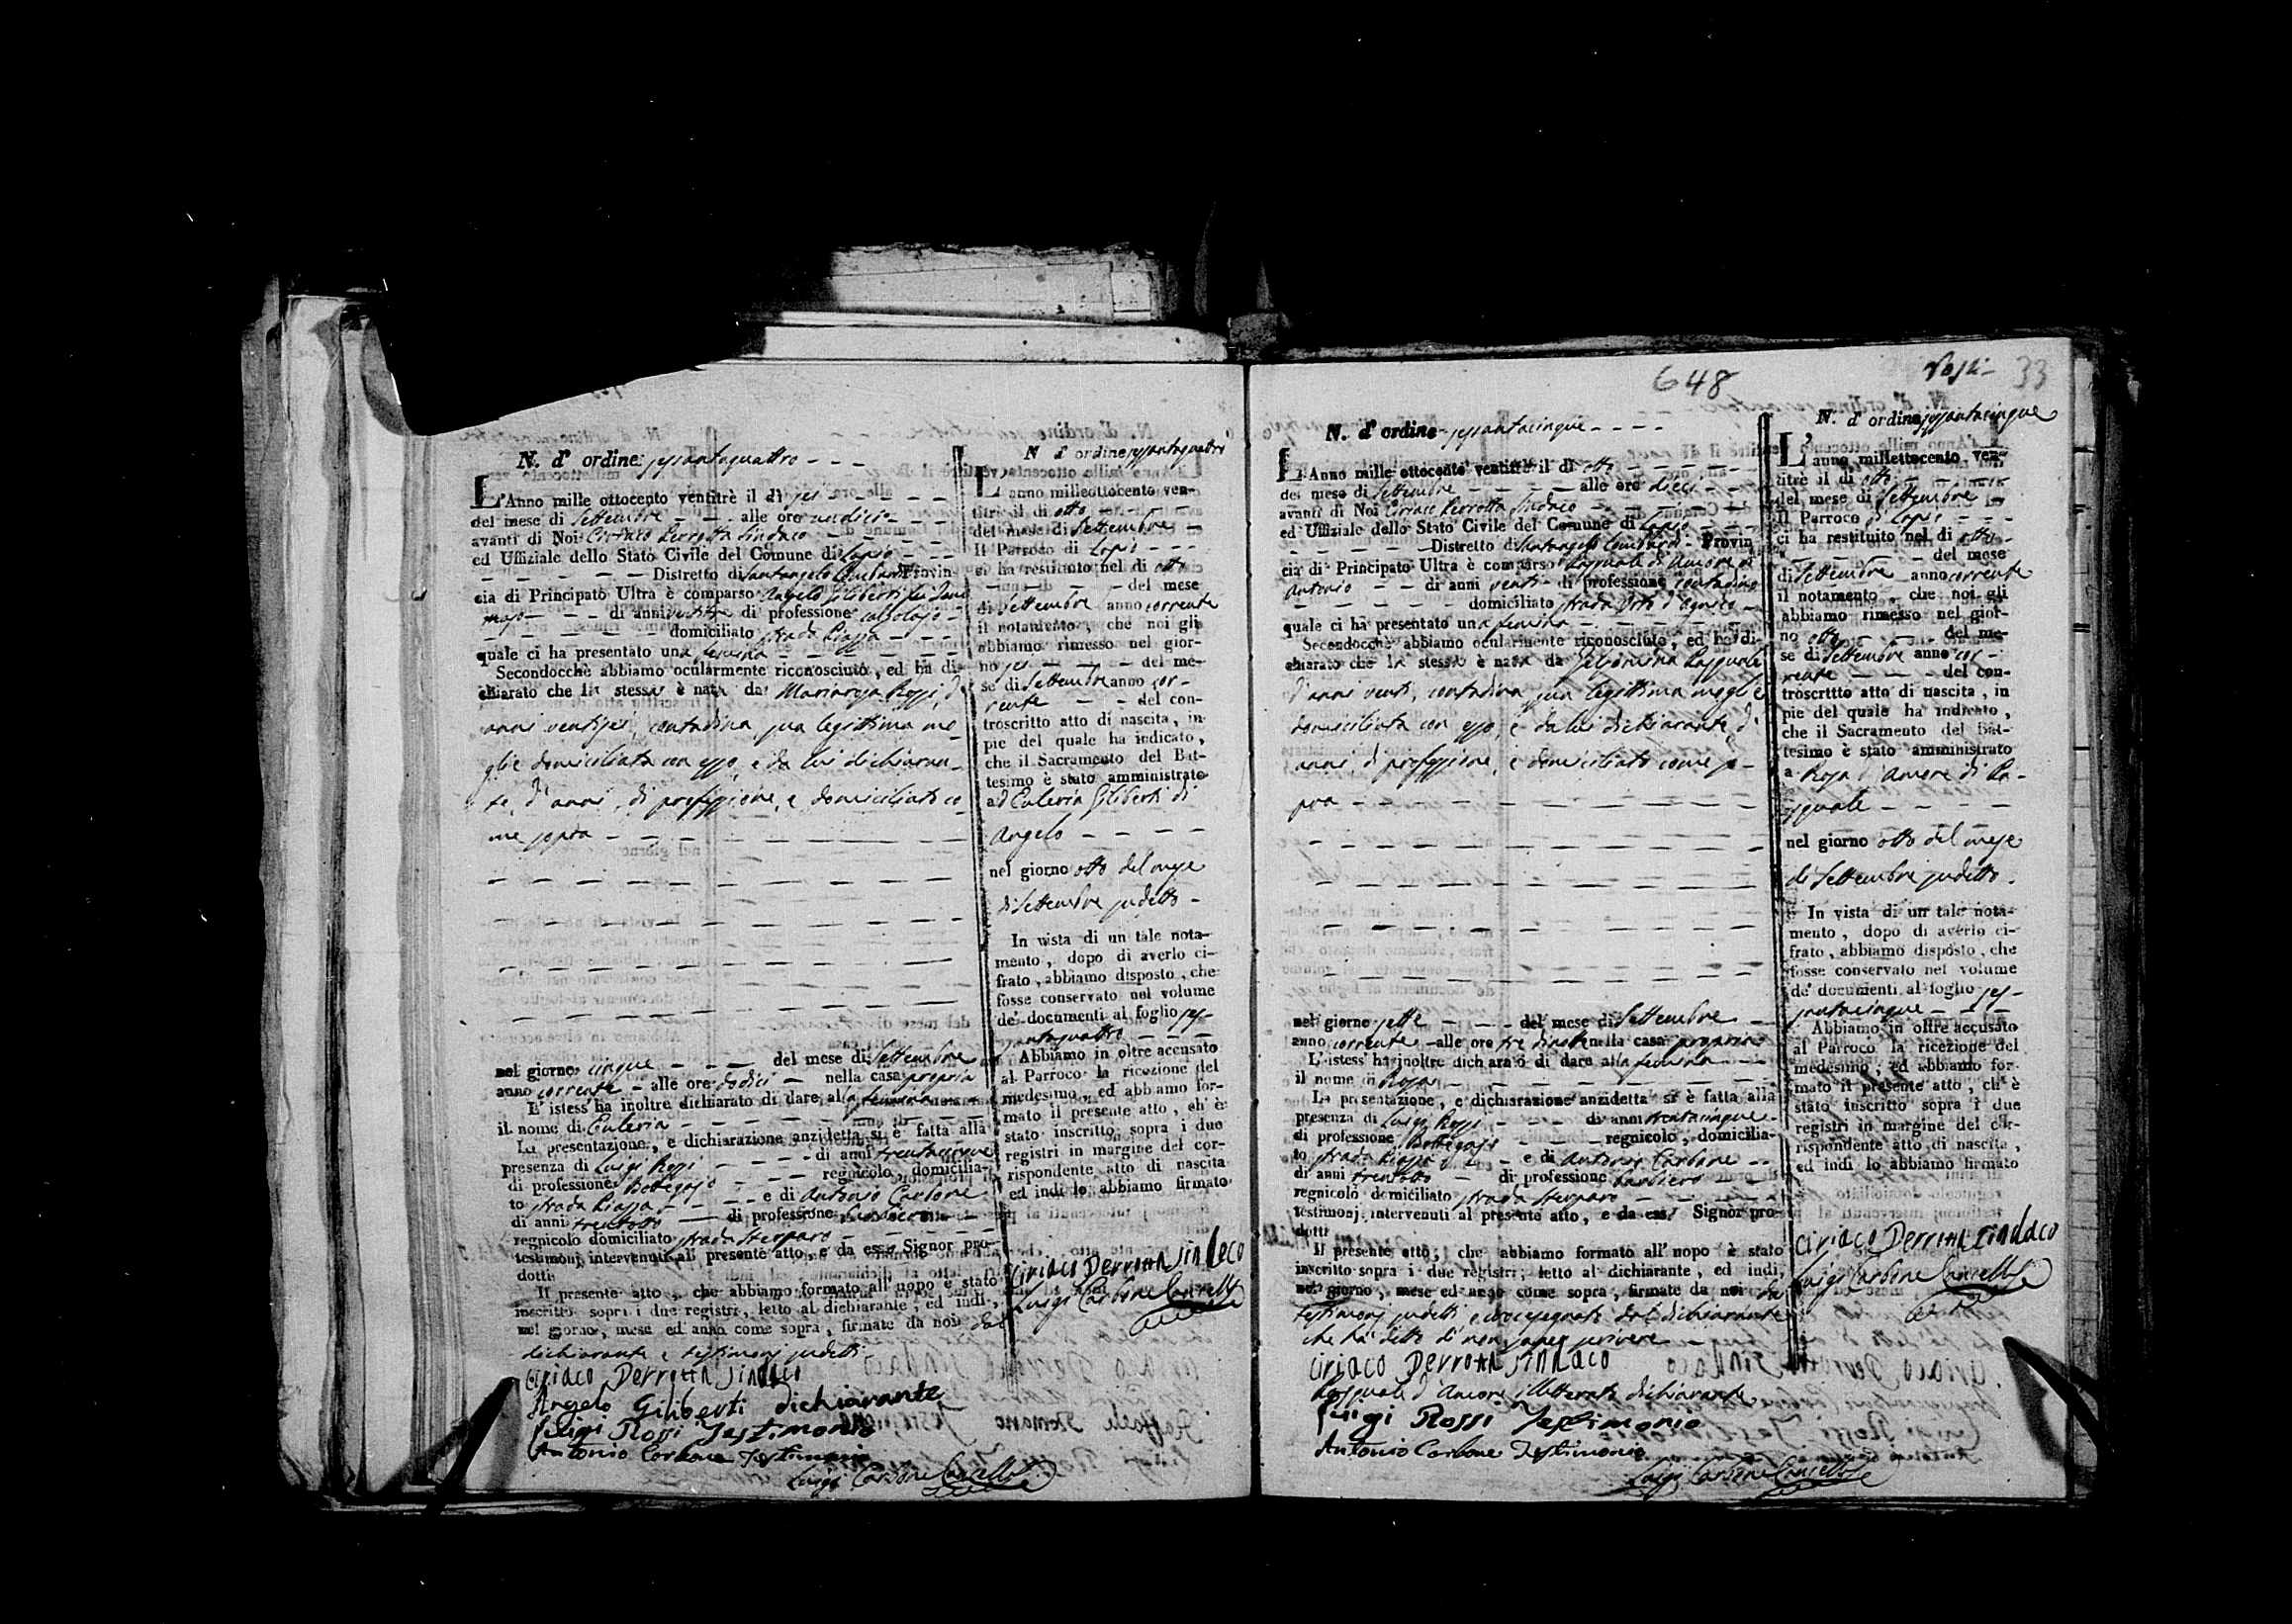 N. d' ordine sessantaquattro
L'Anno mille ottocento ventitrè il dì sei
del mese di Settembre alle ore undici
avanti di Noi Ciriaco Perrotta Sindaco
ed Uffiziale dello Stato Civile del Comune di Lapio
Distretto di Santangelo Lombardi Provin
cia di Principato Ultra è comparso Angelo Giliberti fu Tom
maso di anni ventitre di professione calzolajo
domiciliato strada Piazza
quale ci ha presentato una femina
Secondocchè abbiamo ocularmente riconosciuto, ed ha di
chiarato che la stessa è nata da Mariarosa Rossi, d'
anni ventisei, contadina, sua legittima mo
glie domiciliata con esso, e da lui dichiaran
te, d'anni, di professione, e domiciliato co
me sopra
nel giorno cinque del mese di Settembre
anno corrente alle ore dodici nella casa propria
L'istess' ha inoltre dichiarato di dare alla femina
il nome di Euleria
La presentazione, e dichiarazione anzidetta si è fatta alla
presenza di Luigi Rossi di anni trentacinque
di professione Bottegajo regnicolo, domicilia-
to strada Piazza e di Antonio Carbone
di anni trentotto di professione barbiere
regnicolo domiciliato strada Sterparo
testimonj intervenuti all presente atto, e da esso Signor pro-
dotti
Il presente atto, che abbiamo formato all' uopo è stato
inscritto sopra i due registri, letto al dichiarante, ed indi,
nel giorno, mese ed anno come sopra, firmate da noi dal
dichiarante e testimonj sudetti
Ciriaco Perrotta Sindaco
Angelo Giliberti dichiarante
Luigi Rossi Testimonio
Antonio Carbone Testimonio
Luigi Carbone Cancelle
N d' ordine sessantaquattro
L' anno milleottocento ven-
titrè il di otto
del mese di Settembre
Il Parroco di Lapio
ci ha restituito nel di otto
del mese
di Settembre anno corrente
il notamento, che noi gli
abbiamo rimesso nel gior-
no sei del me-
se di Settembre anno cor-
rente del con-
troscritto atto di nascita, in
pie del quale ha indicato,
che il Sacramento del Bat-
tesimo è stato amministrato
ad Euleria Giliberti di
Angelo
nel giorno otto del mese
di Settembre sudetto
In vista di un tale nota-
mento, dopo di averlo ci-
frato, abbiamo disposto, che
fosse conservato nel volume
de' documenti al foglio ses-
santaquattro
Abbiamo in oltre accusato
al Parroco la ricezione del
medesimo, ed abbiamo for-
mato il presente atto, ch' è
stato inscritto sopra i due
registri in margine del cor-
rispondente atto di nascita
ed indi lo abbiamo firmato
Ciriaco Perrotta Sindeco
Luigi Carbone Cancelle
648
33
N. d' ordine sessantacinque
L'Anno mille ottocento ventitrè il dì otto
del mese di Settembre alle ore dieci
avanti di Noi Ciriaco Perrotta Sindaco
ed Uffiziale dello Stato Civile del Comune di Lapio
Distretto di Santangelo Lombardi Provin
cia di Principato Ultra è comparso Pasquale di Amore di
Antonio di anni venti di professione contadino
domiciliato strada
quale ci ha presentato una femina
Secondocchè abbiamo ocularmente riconosciuto, ed ha di
chiarato che la stessa è nata da Gelsomina Pasquale
d'anni venti, contadina sua legittima moglie
domiciliata con esso, e da lui dichiarante d'
anni, di professione, e domiciliato come so-
pra
nel giorno sette del mese di Settembre
anno corrente alle ore tre di notte nella casa propria
L'istess' ha inoltre dichiarato di dare alla femina
il nome di Rosa
La presentazione, e dichiarazione anzidetta si è fatta alla
presenza di Luigi Rossi di anni trentacinque
di professione Bottegajo regnicolo, domicilia-
to strada Piazza e di Antonio Carbone
di anni trentotto di professione barbiere
regnicolo domiciliato strada Sterparo
testimonj intervenuti al presente atto, e da esso Signor pro-
dotti
Il presente atto, che abbiamo formato all' uopo è stato
inscritto sopra i due registri, letto al dichiarante, ed indi,
nel giorno, mese ed anno come sopra, firmate da noi da
testimonj sudetti e crocesegnato dal dichiarante
che ha detto di non saper scrivere
Ciriaco Perrotta Sindaco
Pasquale d'Amore illetterato dichiarante
Luigi Rossi Testimonio
Antonio Carbone Testimonio
Luigi Carbone Cancelle
N. d' ordine sessantacinque
L' anno millettocento ven-
titrè il di otto
del mese di Settembre
Il Parroco di Lapio
ci ha restituito nel di otto
del mese
di Settembre anno corrente
il notamento, che noi gli
abbiamo rimesso nel gior-
no otto del me-
se di Settembre anno cor-
rente del con-
troscrttto atto di nascita, in
pie del quale ha indicato,
che il Sacramento del Bat-
tesimo è stato amministrato
a Rosa d'Amore di Pa-
squale
nel giorno otto del mese
di Settembre sudetto.
In vista di un tale nota-
mento, dopo di averlo ci-
frato, abbiamo disposto, che
fosse conservato nel volume
de' documenti al foglio ses-
santacinque
Abbiamo in oltre accusato
al Parroco la ricezione del
medesimo, ed abbiamo for-
mato il presente atto, ch' è
stato inscritto sopra i due
registri in margine del cor-
rispondente atto di nascita,
ed indi lo abbiamo firmato
Ciriaco Perrotta Sindaco
Luigi Carbone Cancelle